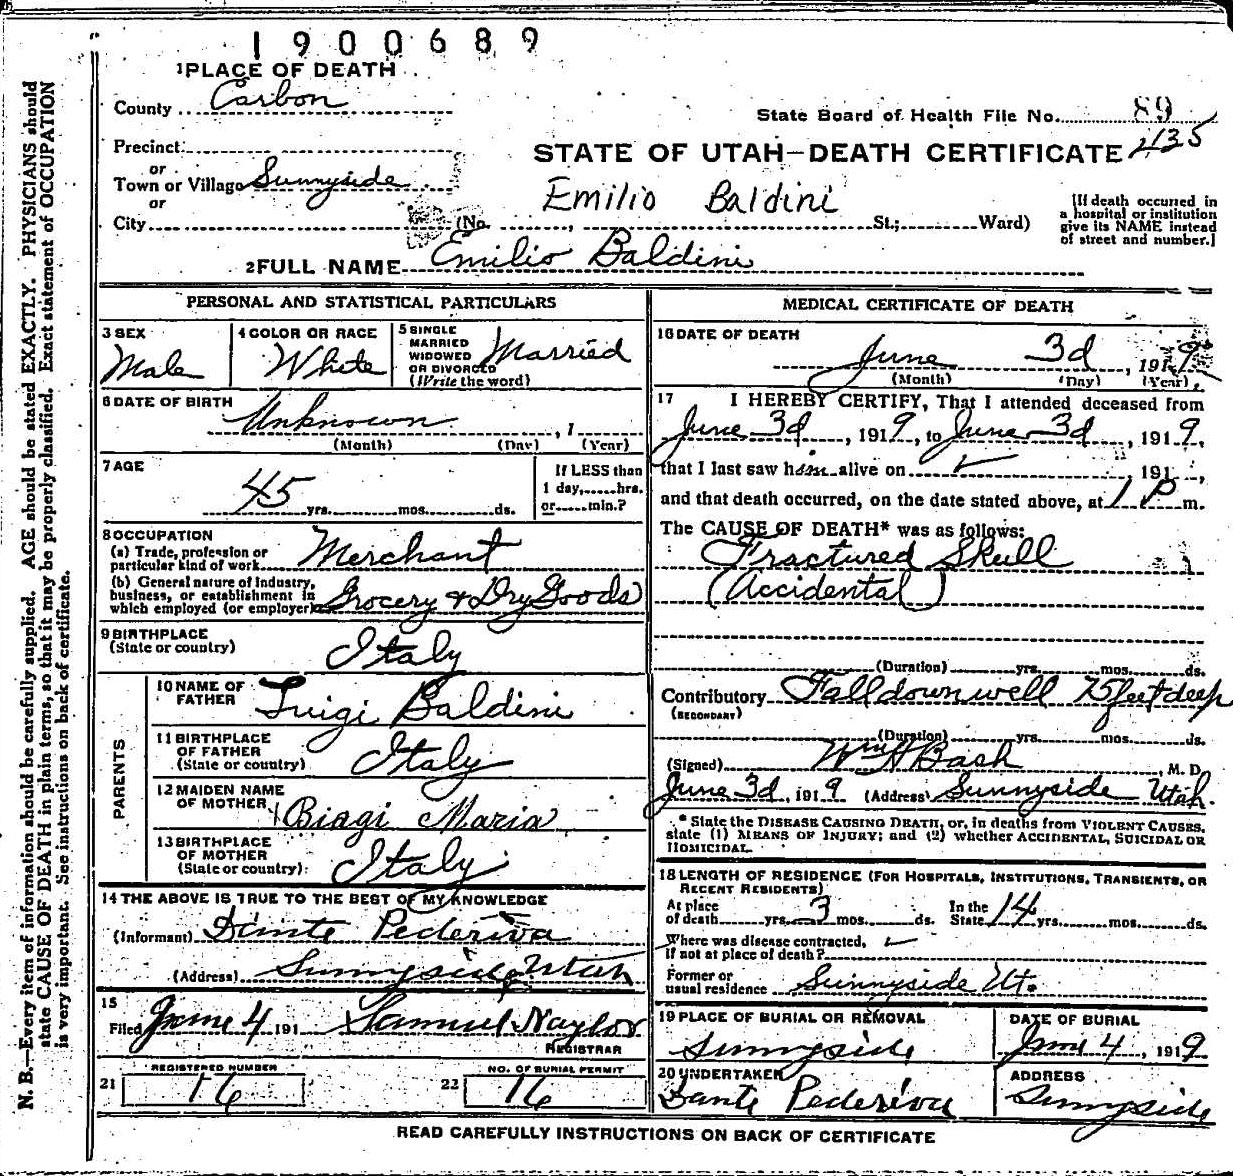 1900689
1 PLACE OF DEATH
County Carbon
State Board of Health File No. 89
Precinct
or
Town or Village Sunnyside
or
City (No. , St.; Ward)
STATE OF UTAH—DEATH CERTIFICATE 435
Emilio Baldini
[If death occurred in
a hospital or institution
give its NAME instead
of street and number.]
2 FULL NAME Emilio Baldini
PERSONAL AND STATISTICAL PARTICULARS
3 SEX
Male
4 COLOR OR RACE
White
5 SINGLE
MARRIED
WIDOWED
OR DIVORCED
(Write the word)
Married
6 DATE OF BIRTH
Unknown , 1
(Month) (Day) (Year)
7 AGE
45 yrs. mos. ds.
If LESS than
1 day, hrs.
or min.?
8 OCCUPATION
(a) Trade, profession or
particular kind of work Merchant
(b) General nature of Industry,
business, or establishment in
which employed (or employer) Grocery & Dry Goods
9 BIRTHPLACE
(State or country) Italy
PARENTS
10 NAME OF
FATHER Luigi Baldini
11 BIRTHPLACE
OF FATHER
(State or country) Italy
12 MAIDEN NAME
OF MOTHER Biagi Maria
13 BIRTHPLACE
OF MOTHER
(State or country) Italy
14 THE ABOVE IS TRUE TO THE BEST OF MY KNOWLEDGE
(Informant) Dante Pederiva
(Address) Sunnyside Utah
15
Filed June 4 191 Samuel Naylor
REGISTRAR
21 REGISTERED NUMBER
16
22 NO. OF BURIAL PERMIT
16
MEDICAL CERTIFICATE OF DEATH
16 DATE OF DEATH
June 3d , 1919
(Month) (Day) (Year)
17 I HEREBY CERTIFY, That I attended deceased from
June 3d , 1919, to June 3d , 1919,
that I last saw him alive on ✓ , 191 ,
and that death occurred, on the date stated above, at 1 P m.
The CAUSE OF DEATH* was as follows:
Fractured Skull
(Accidental)
(Duration) yrs. mos. ds.
Contributory Fall down well 75 feet deep
(SECONDARY)
(Duration) yrs. mos. ds.
(Signed) Wm H Bash , M. D.
June 3d, 1919 (Address) Sunnyside Utah.
* State the DISEASE CAUSING DEATH, or, in deaths from VIOLENT CAUSES,
state (1) MEANS OF INJURY; and (2) whether ACCIDENTAL, SUICIDAL OR
HOMICIDAL.
18 LENGTH OF RESIDENCE (FOR HOSPITALS, INSTITUTIONS, TRANSIENTS, OR
RECENT RESIDENTS)
At place
of death yrs. 3 mos. ds.
In the
State 14 yrs. mos. ds.
Where was disease contracted, ✓
if not at place of death?
Former or
usual residence Sunnyside Ut.
19 PLACE OF BURIAL OR REMOVAL
Sunnyside
DATE OF BURIAL
June 4 , 1919
20 UNDERTAKER
Dante Pederiva
ADDRESS
Sunnyside
READ CAREFULLY INSTRUCTIONS ON BACK OF CERTIFICATE
N. B.—Every item of information should be carefully supplied. AGE should be stated EXACTLY. PHYSICIANS should
state CAUSE OF DEATH in plain terms, so that it may be properly classified. Exact statement of OCCUPATION
is very important. See instructions on back of certificate.